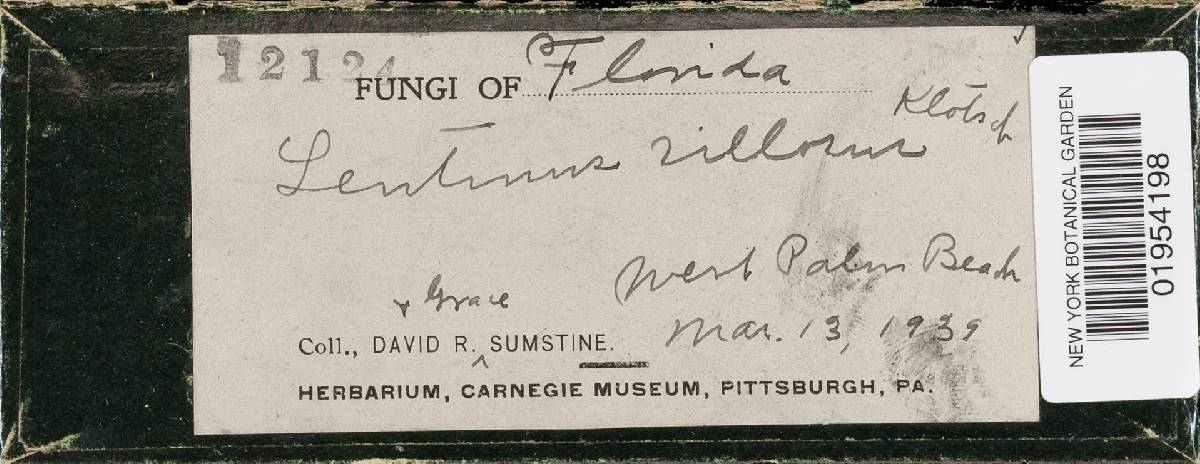 12124
FUNGI OF Florida
Lentinus villosus Klotsch
West Palm Beach
& Grace
Mar. 13, 1939
Coll., DAVID R. ‸ SUMSTINE.
HERBARIUM, CARNEGIE MUSEUM, PITTSBURGH, PA.
NEW YORK BOTANICAL GARDEN
01954198